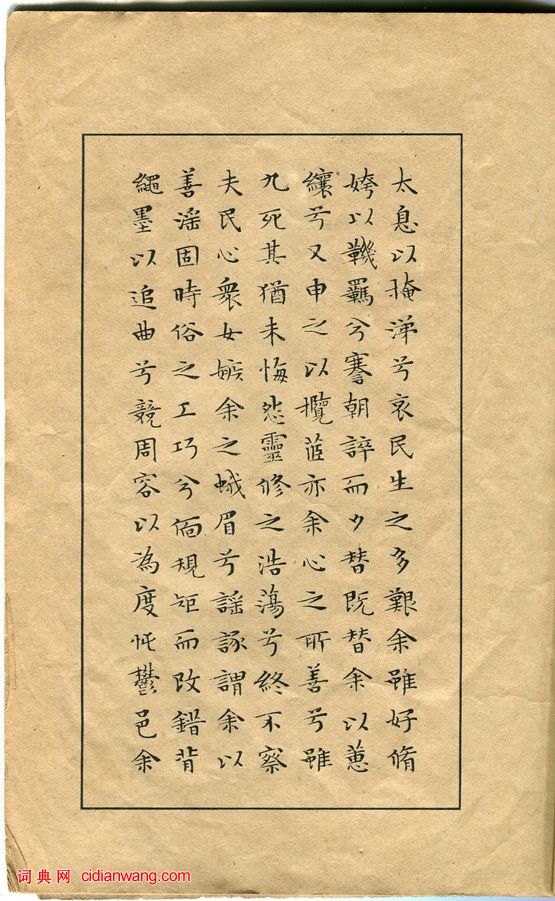 太息以掩涕兮哀民生之多艱余雖好脩
姱以鞿羈兮謇朝誶而夕替既替余以蕙
纕兮又申之以攬茝亦余心之所善兮雖
九死其猶未悔怨靈修之浩蕩兮終不察
夫民心衆女嫉余之蛾眉兮謠諑謂余以
善滛固時俗之工巧兮偭規矩而改錯背
繩墨以追曲兮競周容以為度忳鬱邑余
词典网 cidianwang.com